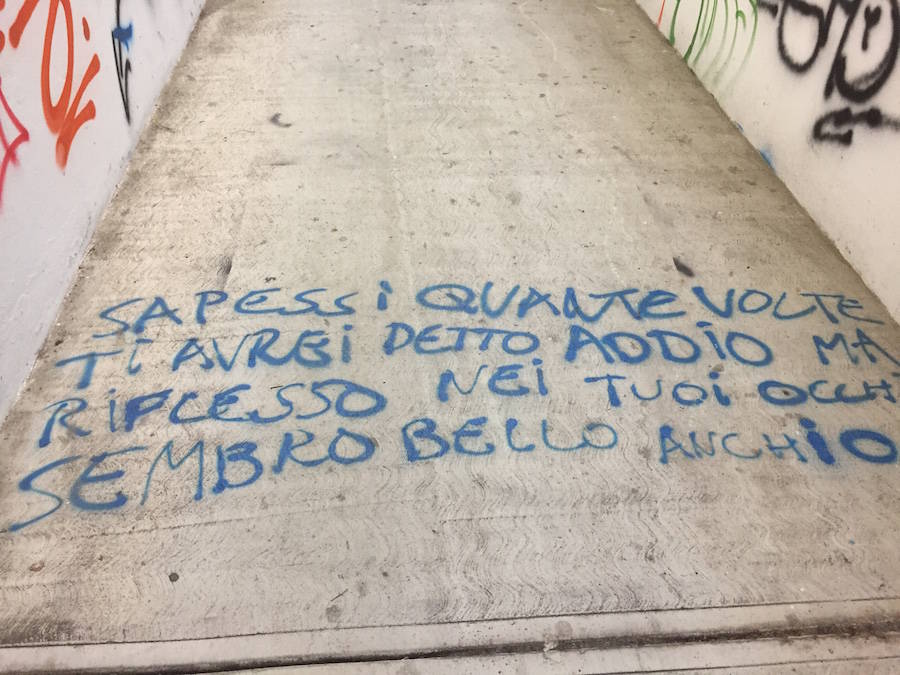 SAPESSi QUANTE VOLTE
Ti AVREi DETTO ADDiO MA
RIFLESSO NEi TUOi OCCHi
SEMBRO BELLO ANCHiO